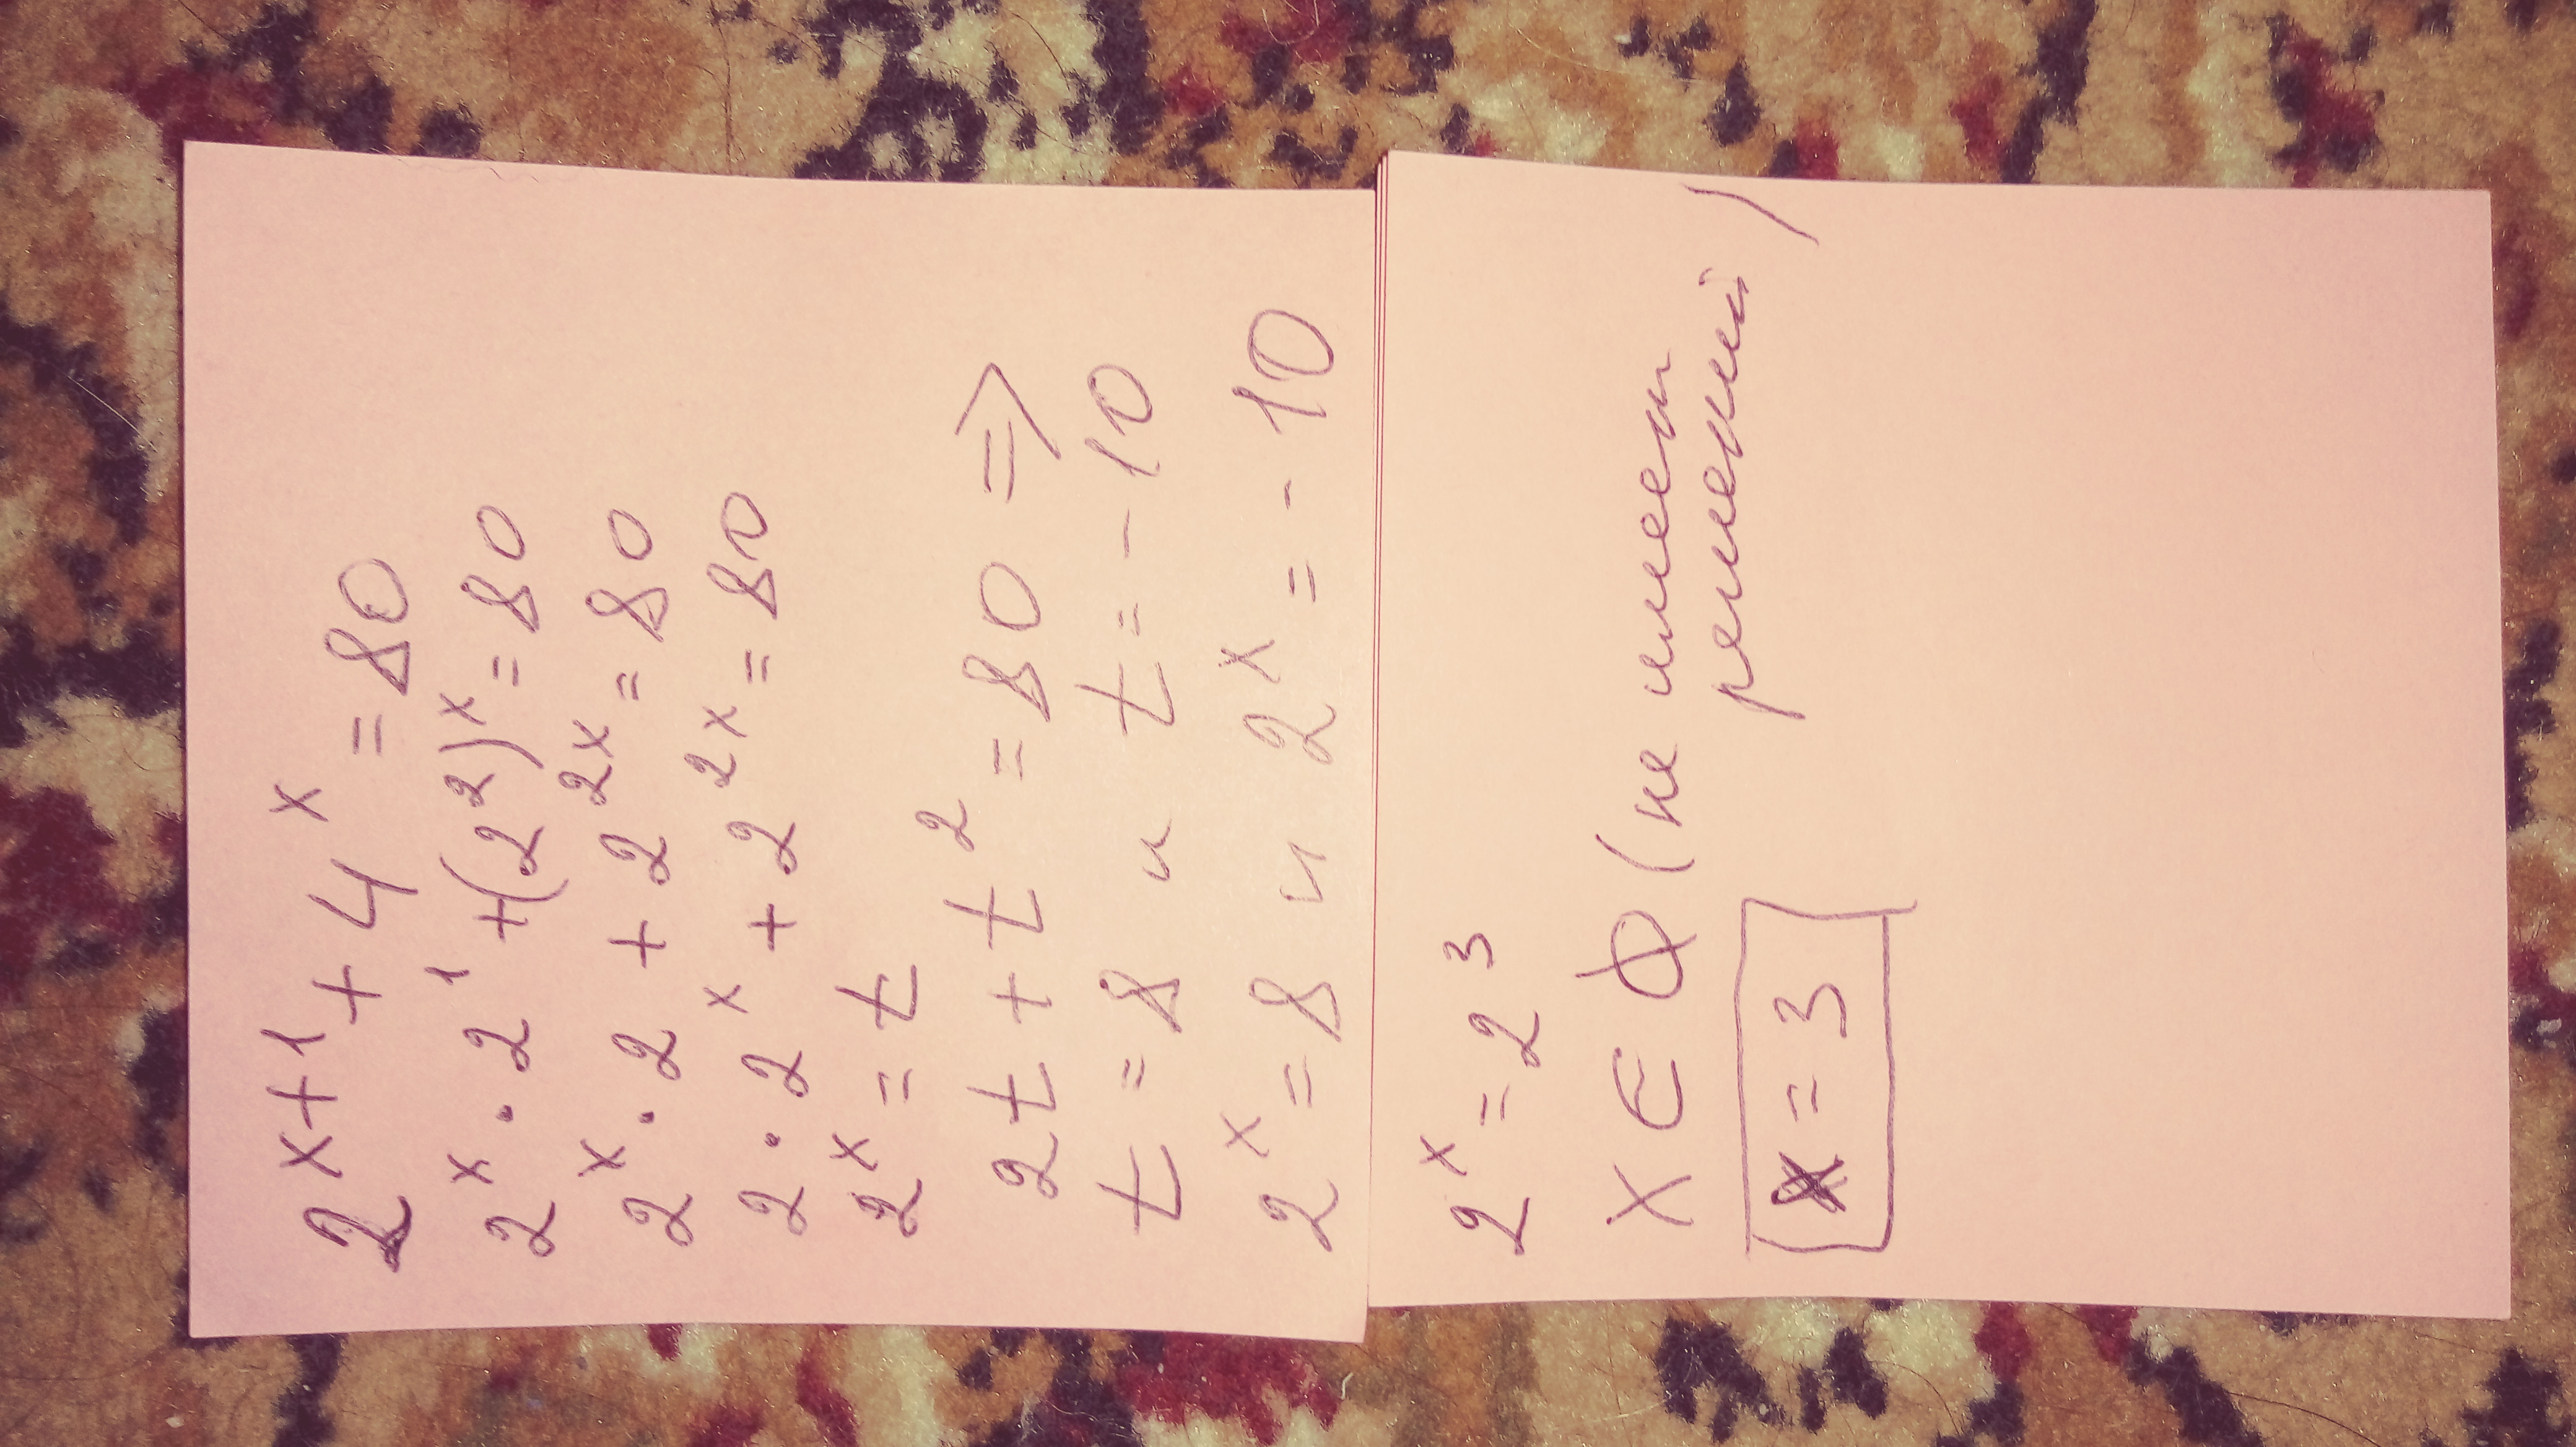 2^(x+1) + 4^x = 80
2^x · 2^1 + (2^2)^x = 80
2^x · 2 + 2^(2x) = 80
2 · 2^x + 2^(2x) = 80
2^x = t
2t + t^2 = 80 =>
t = 8 и t = -10
2^x = 8 и 2^x = -10
2^x = 2^3
x ∈ ∅ (не имеет
решений)
x = 3